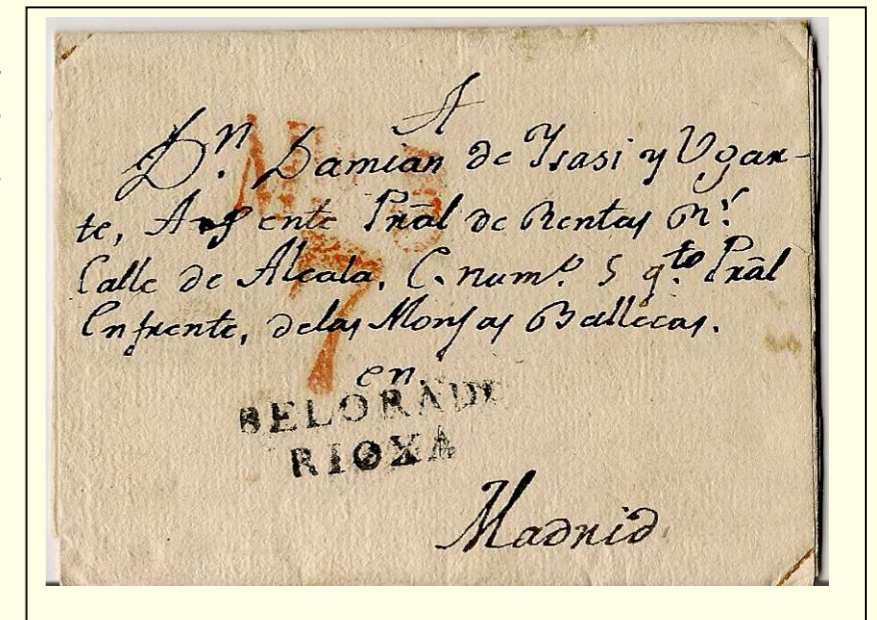 A
Dn. Damian de Ysasi y Ugar-
te, Agente Prãl de Rentas Rs.
Calle de Alcala, C. numo. 5 qto. Prãl
Enfrente, delas Monjas Ballecas.
en
7
BELORADO
RIOXA
Madrid